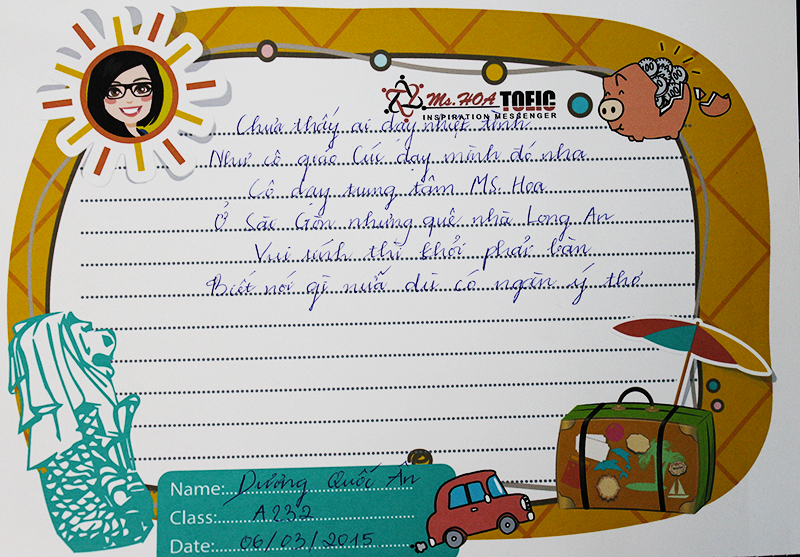 Ms. HOA TOEIC
INSPIRATION MESSENGER
Chưa thấy ai dạy nhiệt tình
Như cô giáo Cúc dạy mình đó nha
Cô dạy trung tâm MS. Hoa
Ở Sài Gòn nhưng quê nhà Long An
Vui tính thì khỏi phải bàn
Biết nói gì nữa dù có ngàn ý thơ
Name: Dương Quốc Ân
Class: A232
Date: 06/03/2015